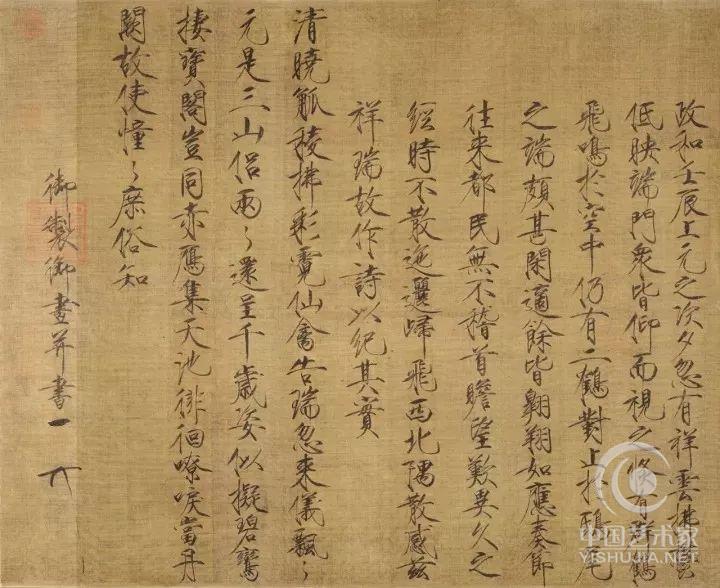 政和壬辰上元之次夕忽有祥雲拂鬱
低映端門衆皆仰而視之倏有羣鶴
飛鳴於空中仍有二鶴對止於鴟尾
之端頗甚閑適餘皆翺翔如應奏節
往来都民無不稽首瞻望歎異久之
經時不散迤邐歸飛西北隅散感茲
祥瑞故作詩以紀其實
清曉觚稜拂彩霓仙禽告瑞忽来儀飄〻
元是三山侣兩〻還呈千歲姿似擬碧鸞
棲寶閣豈同赤鴈集天池徘徊嘹唳當丹
闕故使憧〻庶俗知
御製御畫并書
中国艺术家
YISHUJIA.NET